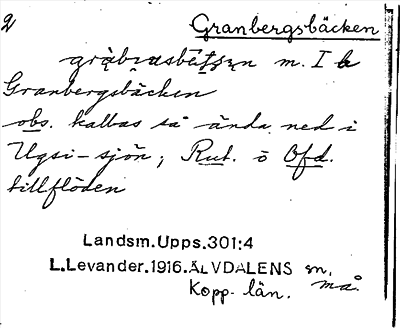 2 Granbergsbäcken
m. I b
Granbergsbäcken
obs. kallas så ända ned i
Ugsi-sjön; Rut. o Ofd.
tillflöden
Landsm. Upps. 301:4
L.Levander. 1916. ÄLVDALENS sn.
Kopp. län. må.